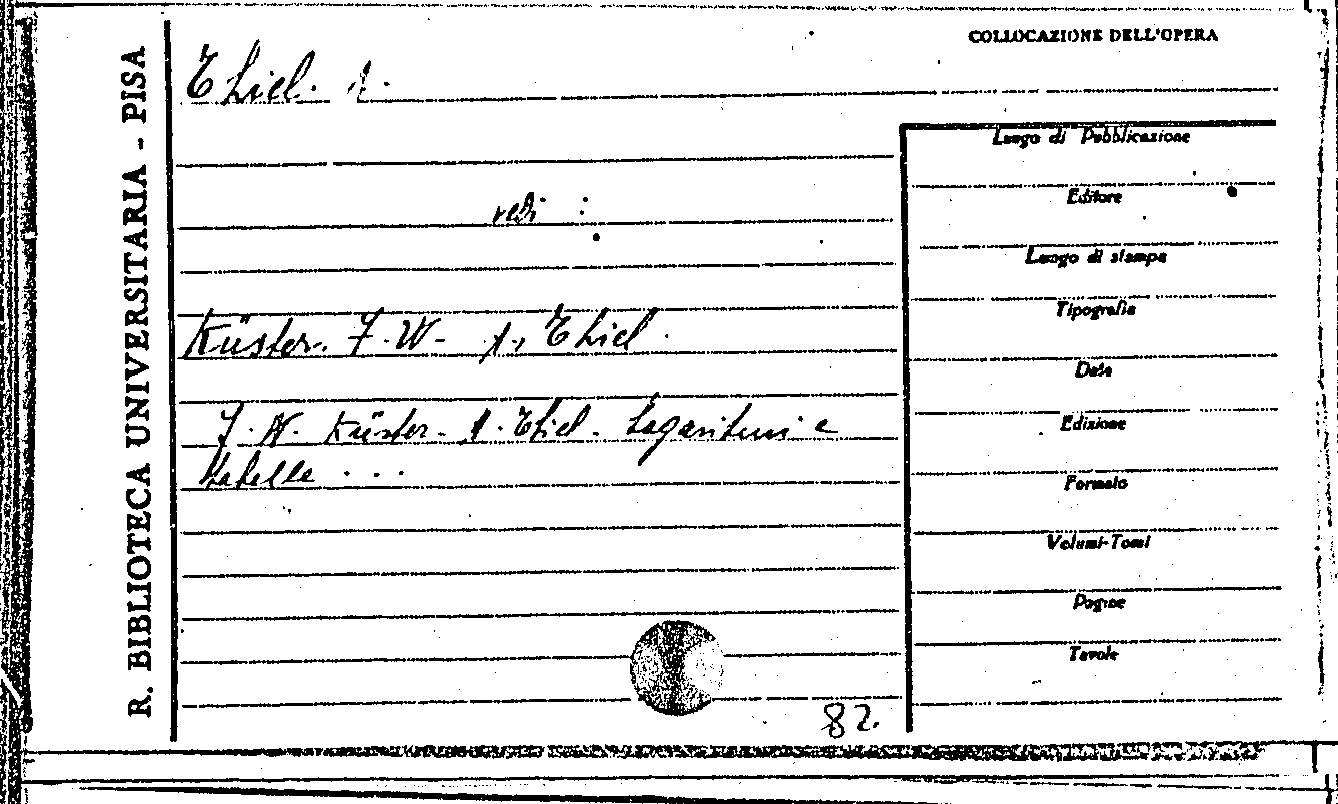 COLLOCAZIONE DELL'OPERA
R. BIBLIOTECA UNIVERSITARIA - PISA
Thiel. A.
vedi :
Küster. F. W. - A., Thiel.
F. W. Küster - A. Thiel - Logaritmi e
tabelle . . .
82.
Luogo di Pubblicazione
Editore
Luogo di stampa
Tipografia
Data
Edizione
Formato
Volumi-Tomi
Pagine
Tavole